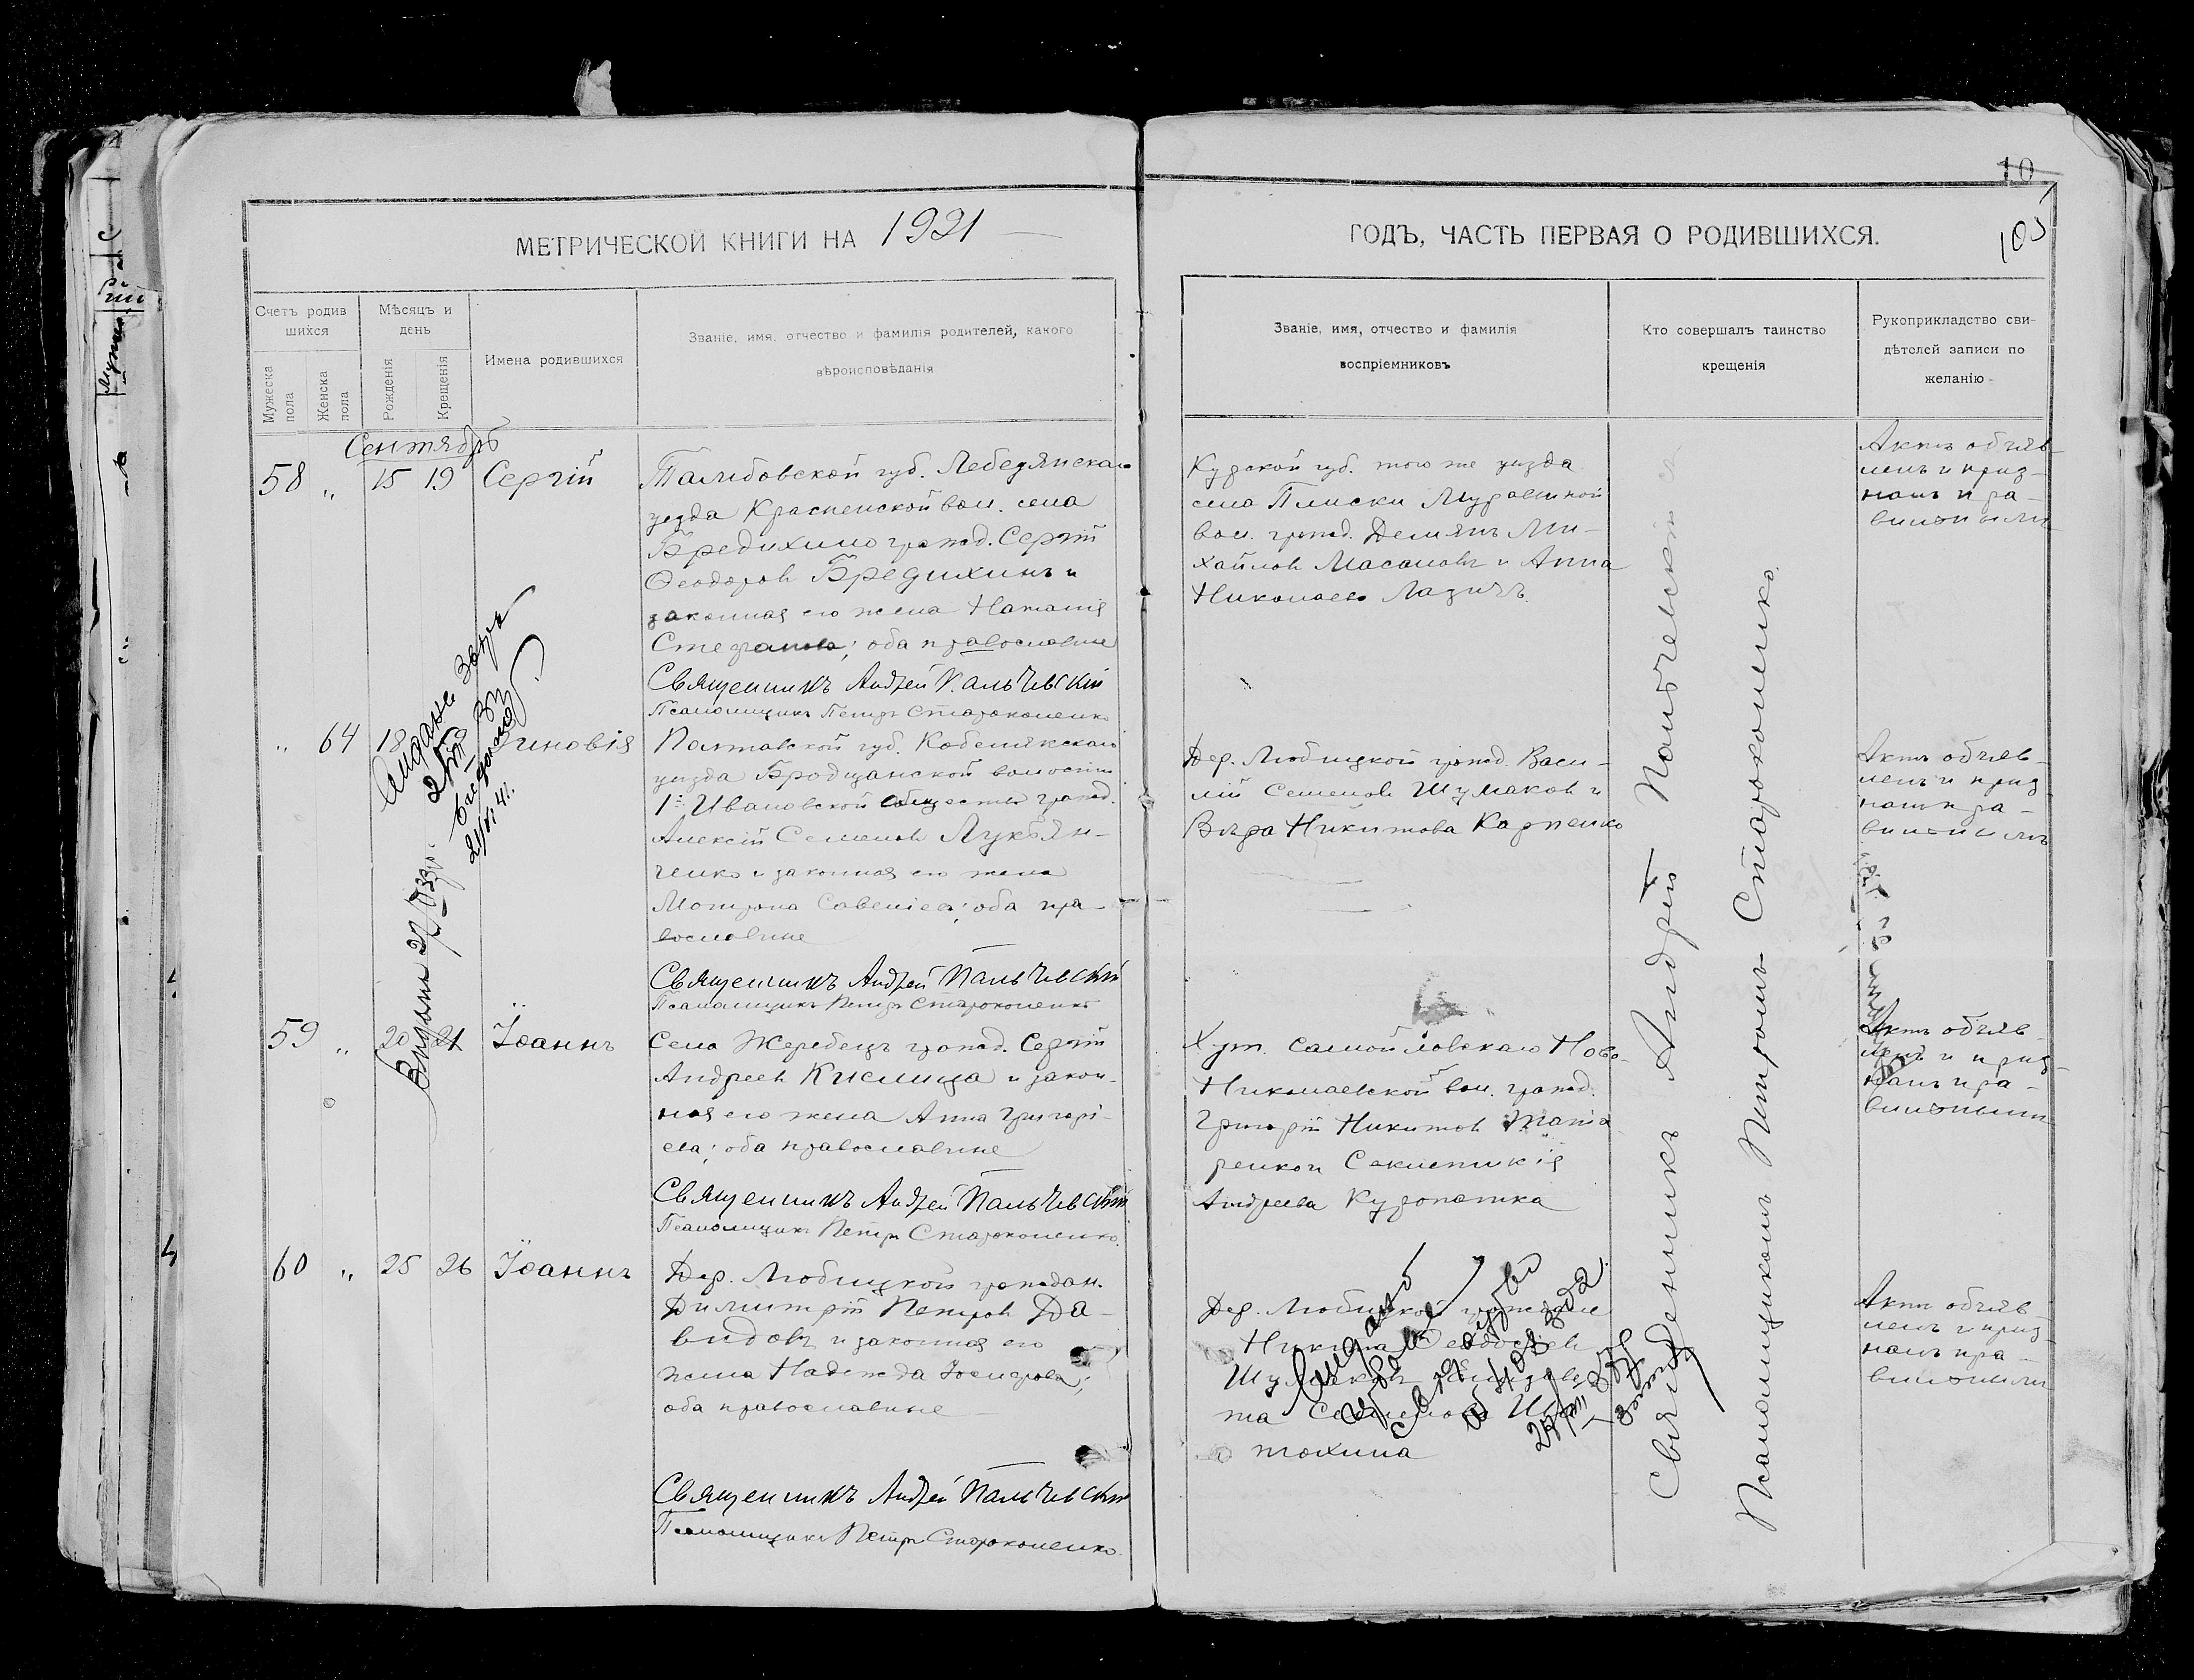 10
105
МЕТРИЧЕСКОЙ КНИГИ НА 1921
ГОДЪ, ЧАСТЬ ПЕРВАЯ О РОДИВШИХСЯ.
Счетъ родив
шихся
Мужеска
пола
Женска
пола
Мѣсяцъ и
день
Рожденія
Крещенія
Имена родившихся
Званіе, имя, отчество и фамилія родителей, какого
вѣроисповѣданія
Званіе, имя, отчество и фамилія
воспріемниковъ
Кто совершалъ таинство
крещенія
Рукоприкладство сви-
дѣтелей записи по
желанію
Сентябрь
58 " 15 19 Сергій
Тамбовской губ. Лебедянскаго
уезда Красненской вол. села
Бредихино гражд. Сергій
Феодоровъ Бредихинъ и
законная его жена Наталія
Стефанова; оба православные
Священникъ Андрей Пальчевскій
Псаломщикъ Петръ Староконенко
Курской губ. того же уезда
села Плиски Муравиной
вол. гражд. Демянъ Ми-
хайловъ Масаловъ и Анна
Николаева Ладичъ.
Актъ объяв-
ленъ и приз-
нанъ пра-
вильнымъ
" 64 18 Зиновія
Полтавской губ. Кобелякскаго
уезда Бродщанской волости
1го Ивановскаго общества гражд.
Алексій Семеновъ Лукьян-
ченко и законная его жена
Мотрона Савеліева; оба пра-
вославные
Священникъ Андрей Пальчевскій
Псаломщикъ Петръ Староконенко
Дер. Любицкой гражд. Васи-
лій Семеновъ Шумаковъ и
Вѣра Никитова Карпенко
Актъ объяв-
ленъ и приз-
нанъ пра-
вильнымъ
59 " 20 21 Іоаннъ
Села Жеребецъ гражд. Сергій
Андреевъ Кислица и закон-
ная его жена Анна Григорі-
ева; оба православные
Священникъ Андрей Пальчевскій
Псаломщикъ Петръ Староконенко
Хут. Самойловскаго Ново-
Николаевской вол. гражд.
Григорій Никитовъ
Андреева Куропатка
Актъ объяв-
ленъ и приз-
нанъ пра-
вильнымъ
60 " 25 26 Іоаннъ
Дер. Любицкой граждан.
Димитрій Петровъ Да-
видовъ и законная его
жена Надежда
оба православные
Священникъ Андрей Пальчевскій
Псаломщикъ Петръ Староконенко
Дер. Любицкой граждане
Никита
Актъ объяв-
ленъ и приз-
нанъ пра-
вильнымъ
Священникъ Андрей Пальчевскій
Псаломщикомъ Петромъ Староконенко